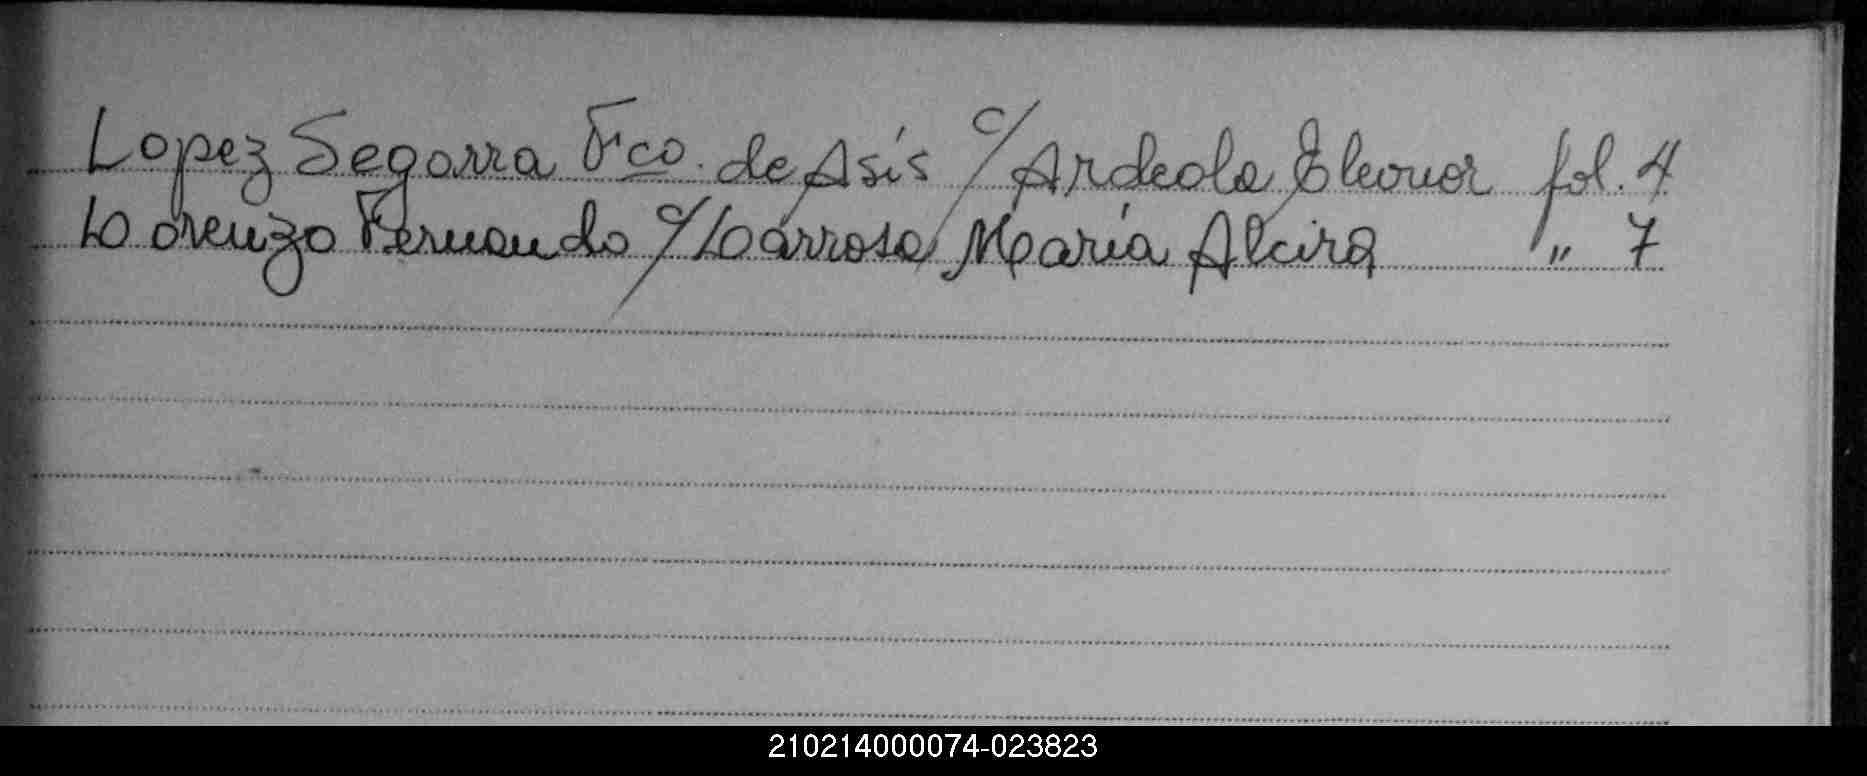 Lopez Segorra Fco. de Asís c/ Ardeola Eleonor fol. 4
Lorenzo Fernando c/ Larrosa María Alcira " 7
210214000074-023823